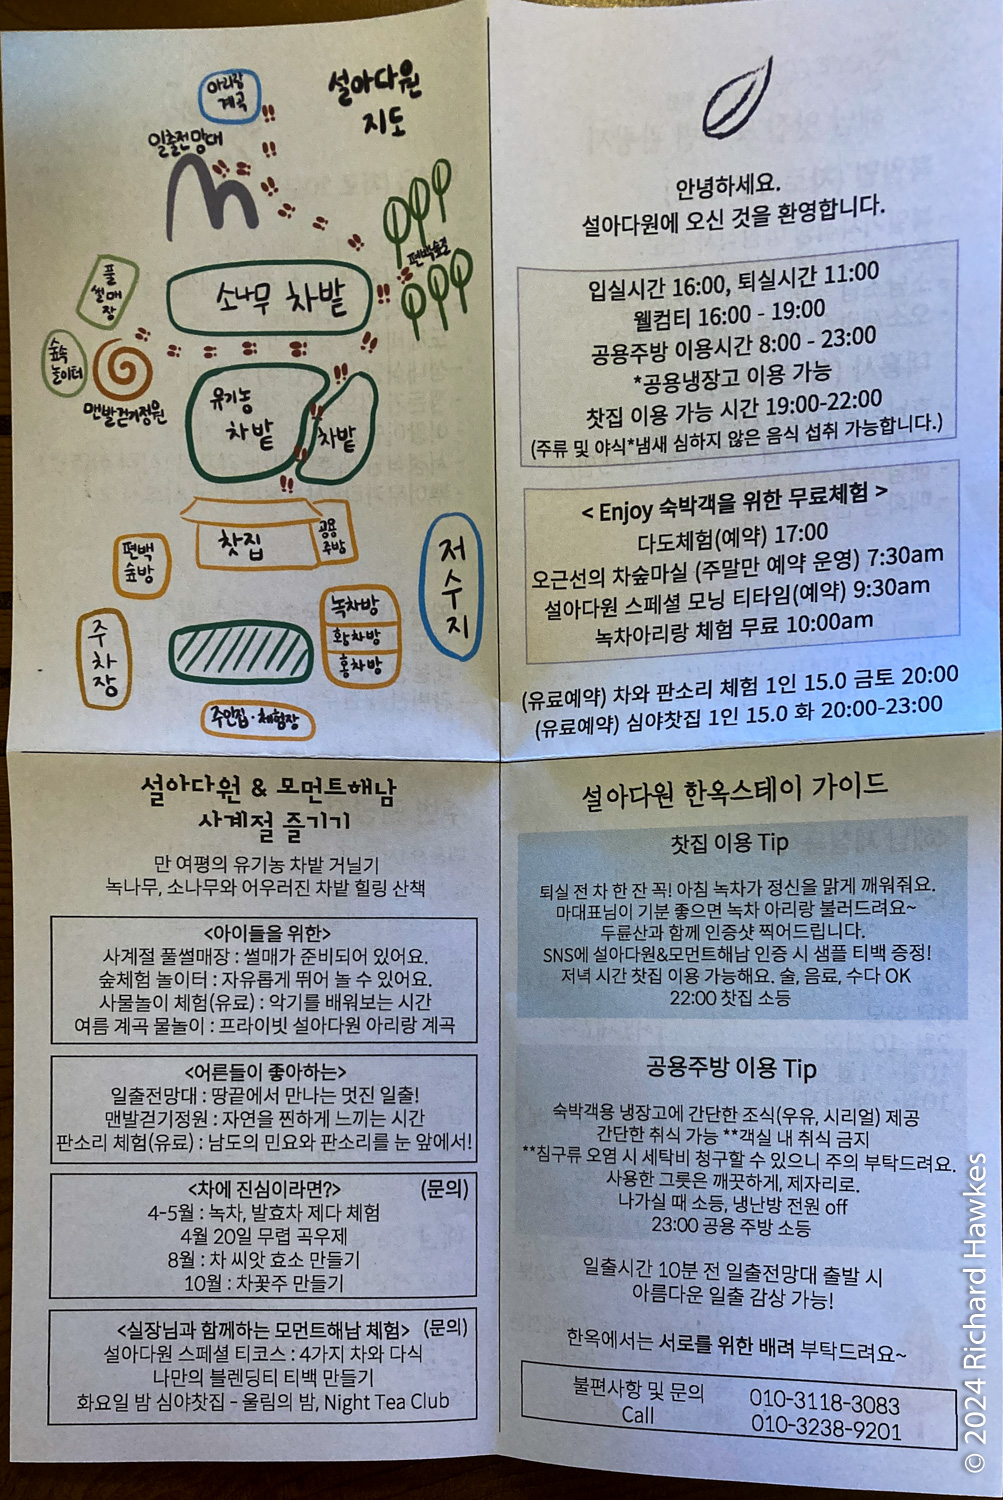 설아다원
지도
아리랑
계곡
일출전망대
편백숲길
풀
썰매
장
소나무 차밭
숲속
놀이터
맨발걷기정원
유기농
차밭
차밭
찻집
공용
주방
편백
숲방
저
수
지
녹차방
황차방
홍차방
주
차
장
주인집·체험장
안녕하세요.
설아다원에 오신 것을 환영합니다.
입실시간 16:00, 퇴실시간 11:00
웰컴티 16:00 - 19:00
공용주방 이용시간 8:00 - 23:00
*공용냉장고 이용 가능
찻집 이용 가능 시간 19:00-22:00
(주류 및 야식*냄새 심하지 않은 음식 섭취 가능합니다.)
< Enjoy 숙박객을 위한 무료체험 >
다도체험(예약) 17:00
오근선의 차숲마실 (주말만 예약 운영) 7:30am
설아다원 스페셜 모닝 티타임(예약) 9:30am
녹차아리랑 체험 무료 10:00am
(유료예약) 차와 판소리 체험 1인 15.0 금토 20:00
(유료예약) 심야찻집 1인 15.0 화 20:00-23:00
설아다원 & 모먼트해남
사계절 즐기기
만 여평의 유기농 차밭 거닐기
녹나무, 소나무와 어우러진 차밭 힐링 산책
<아이들을 위한>
사계절 풀썰매장 : 썰매가 준비되어 있어요.
숲체험 놀이터 : 자유롭게 뛰어 놀 수 있어요.
사물놀이 체험(유료) : 악기를 배워보는 시간
여름 계곡 물놀이 : 프라이빗 설아다원 아리랑 계곡
<어른들이 좋아하는>
일출전망대 : 땅끝에서 만나는 멋진 일출!
맨발걷기정원 : 자연을 찐하게 느끼는 시간
판소리 체험(유료) : 남도의 민요와 판소리를 눈 앞에서!
<차에 진심이라면?> (문의)
4-5월 : 녹차, 발효차 제다 체험
4월 20일 무렵 곡우제
8월 : 차 씨앗 효소 만들기
10월 : 차꽃주 만들기
<실장님과 함께하는 모먼트해남 체험> (문의)
설아다원 스페셜 티코스 : 4가지 차와 다식
나만의 블렌딩티 티백 만들기
화요일 밤 심야찻집 - 울림의 밤, Night Tea Club
설아다원 한옥스테이 가이드
찻집 이용 Tip
퇴실 전 차 한 잔 꼭! 아침 녹차가 정신을 맑게 깨워줘요.
마대표님이 기분 좋으면 녹차 아리랑 불러드려요~
두륜산과 함께 인증샷 찍어드립니다.
SNS에 설아다원&모먼트해남 인증 시 샘플 티백 증정!
저녁 시간 찻집 이용 가능해요. 술, 음료, 수다 OK
22:00 찻집 소등
공용주방 이용 Tip
숙박객용 냉장고에 간단한 조식(우유, 시리얼) 제공
간단한 취식 가능 **객실 내 취식 금지
**침구류 오염 시 세탁비 청구할 수 있으니 주의 부탁드려요.
사용한 그릇은 깨끗하게, 제자리로.
나가실 때 소등, 냉난방 전원 off
23:00 공용 주방 소등
일출시간 10분 전 일출전망대 출발 시
아름다운 일출 감상 가능!
한옥에서는 서로를 위한 배려 부탁드려요~
불편사항 및 문의 010-3118-3083
Call 010-3238-9201
© 2024 Richard Hawkes